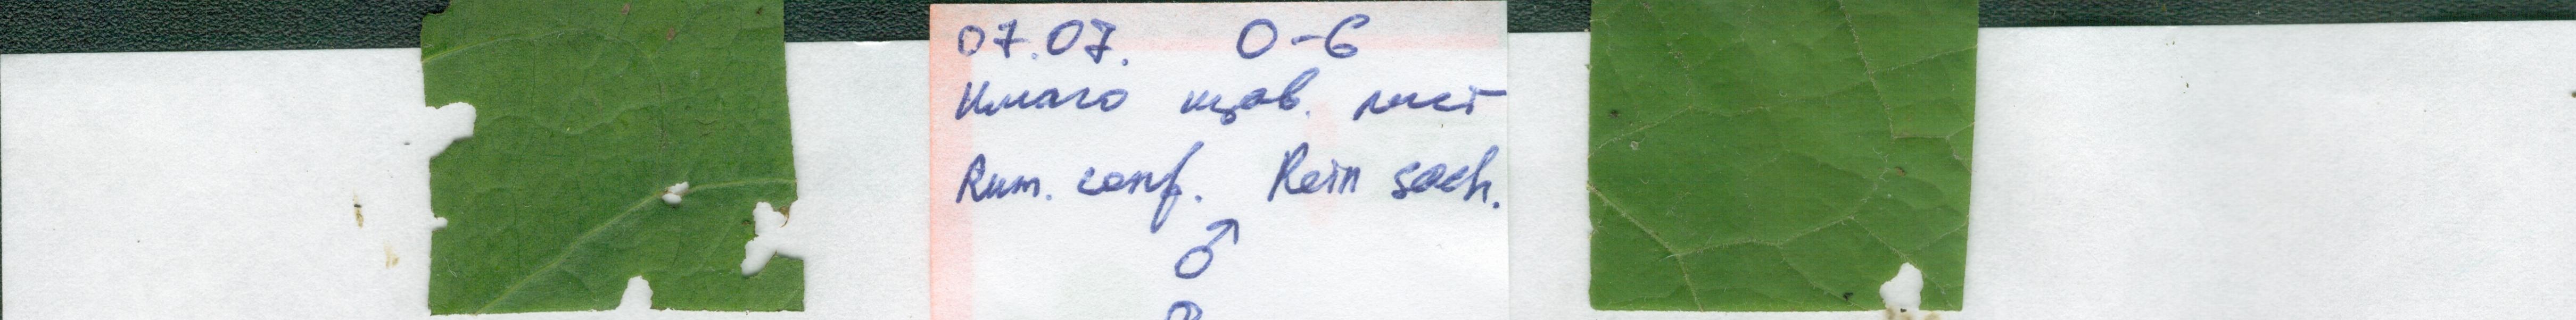 07.07. 0-6
Имаго щав. лист
Rum. conf. Rein sach.
♂